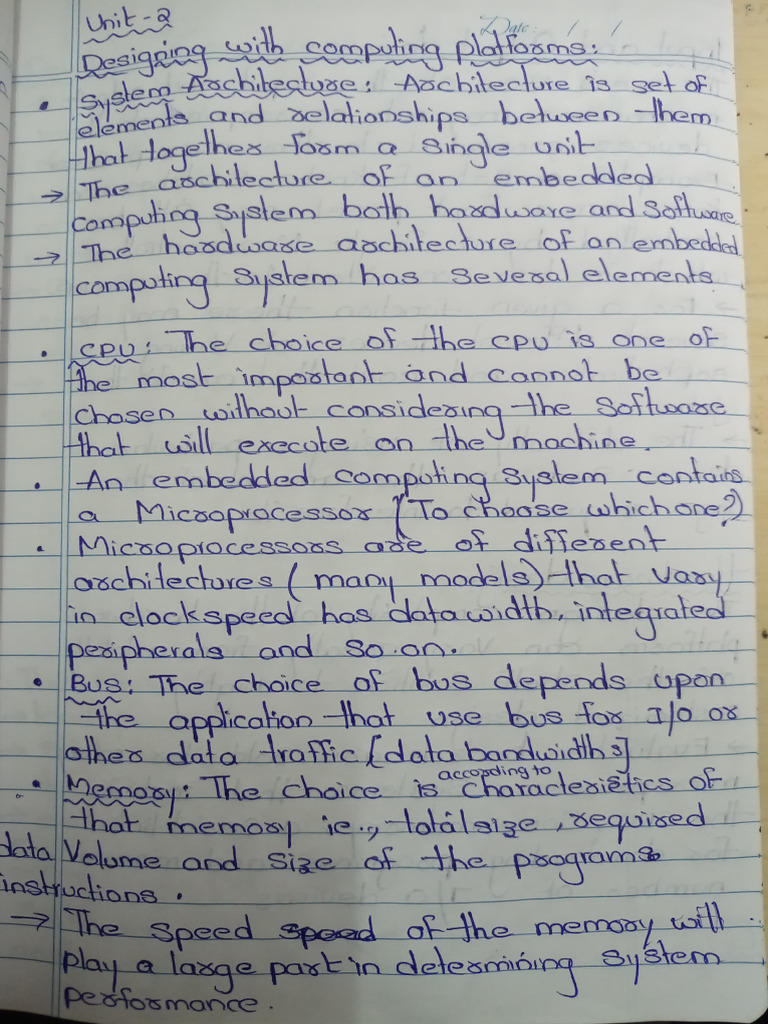 Unit-2
Date: / /
Designing with computing platforms:
• System Architecture: Architecture is set of
elements and relationships between them
that together form a single unit
→ The architecture of an embedded
computing System both hardware and Software
→ The hardware architecture of an embedded
computing System has several elements
• CPU: The choice of the CPU is one of
the most important and cannot be
chosen without considering the Software
that will execute on the machine.
• An embedded computing System contains
a Microprocessor (To choose which one?)
• Microprocessors are of different
architectures (many models) that vary
in clockspeed has data width, integrated
peripherals and so.on.
• Bus: The choice of bus depends upon
the application that use bus for I/O or
other data traffic [data bandwidths]
• Memory: The choice is according to characteristics of
that memory ie., total size, required
data Volume and size of the programs
instructions.
→ The speed speed of the memory will
play a large part in determining system
performance.